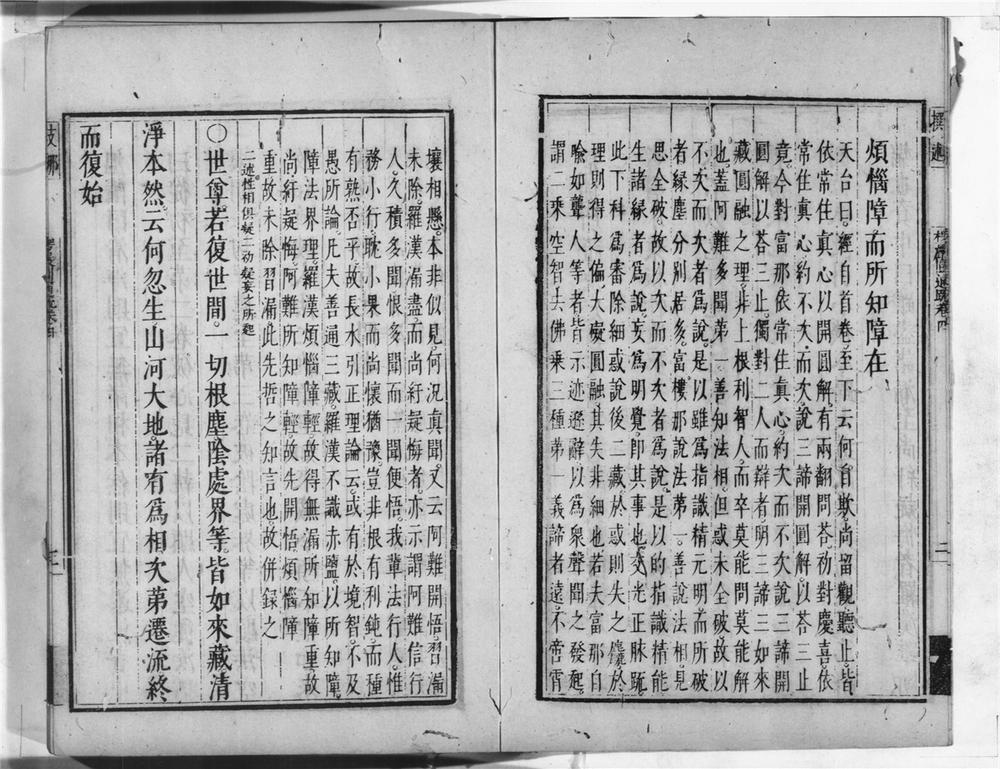 煩惱障而所知障在
天台曰。經自首卷至下云何自欺。尚留觀聽止。皆
依常住真心以開圓解。有兩翻問荅。初對慶喜。依
常住真心約不次。而次說三諦開圓解。以荅三止
竟。今對富那依常住真心。約次而不次說三諦開
圓解以荅三止。獨對二人而辯者。明三諦三如來
藏圓融之理。非上根利智人。而卒莫能問莫能解
也。蓋阿難多聞第一。善知法相。但或未全破。故以
不次而次者爲說。是以雖爲指識精元明。而所破
者緣塵分別居多。富樓那說法第一。善說法相。見
思全破。故以次而不次者爲說。是以的指識精能
生諸緣者故爲說妄爲明覺。即其事也。交光正脉䟽
此下科爲審除細惑說後二藏於或則失之麤。於
理則得之偏。大礙圓融。其失非細也。若夫富那自
喻如聾人等者。皆示迹遜辭以爲衆聲聞之發起。
謂二乘空智去佛乘三種第一義諦者遠。不啻霄
壤相懸。本非似見。何況真聞。又云阿難開悟。習漏
未除。羅漢漏盡而尚紆疑悔者。亦示謂阿難信行
人。久積多聞恨多聞而一聞便悟。我輩法行人。惟
務小行。耽小果而尚懷猶豫。豈非根有利鈍。而種
有熟否乎。故長水引正理論云。或有於境智。不及
愚所論。凡夫善通三藏。羅漢不識赤鹽。以所知障。
障法界理。羅漢煩惱障輕。故得無漏。所知障重。故
尚紆疑悔。阿難所知障輕。故先開悟。煩惱障
重。故未除習漏。此先哲之知言也。故併錄之
二述性相俱疑二動疑妄之所起
○世尊。若復世間。一切根塵陰處界等。皆如來藏清
淨本然。云何忽生山河大地。諸有爲相。次第遷流。終
而復始